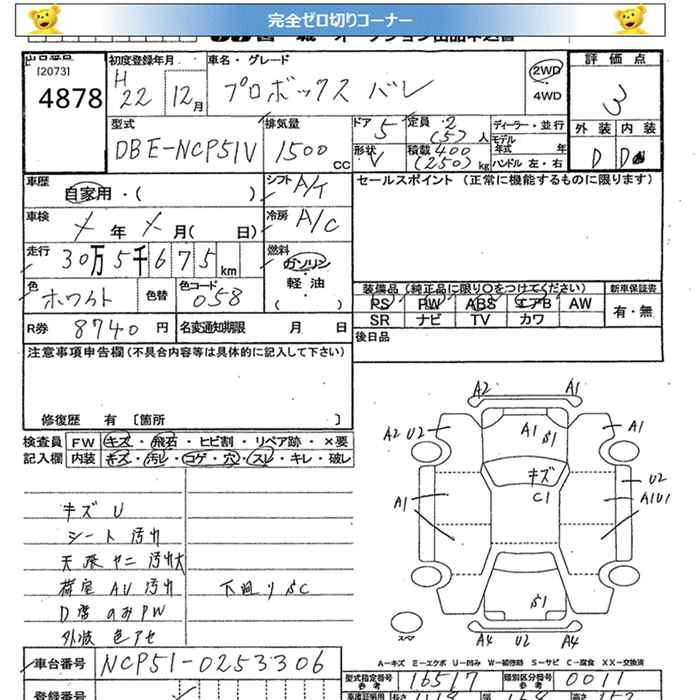 完全ゼロ切りコーナー
出品番号
[2073]
4878
初度登録年月
H 22 12月
車名・グレード
プロボックス バン
2WD
4WD
評価点
3
外装 内装
D D
型式
DBE-NCP51V
排気量
1500 CC
ドア 5
形状 V
定員 2 (5) 人
積載 400 (250) kg
ディーラー・並行
モデル年式 年
ハンドル 左・右
車歴
自家用・( )
シフト A/T
セールスポイント (正常に機能するものに限ります)
車検
メ 年 メ 月( 日)
冷房 A/C
走行
30万5千675km
燃料
ガソリン
・
軽油
( )
色
ホワイト
色替
色コード
058
装備品 (純正品に限り○をつけてください)
新車保証書
PS PW ABS エアB AW
SR ナビ TV カワ
有・無
R券 8740 円
名変通知期限 月 日
後日品
注意事項申告欄(不具合内容等は具体的に記入して下さい)
修復歴 有 〔箇所 〕
検査員記入欄
FW キズ・飛石・ヒビ割・リペア跡・×要
内装 キズ・汚レ・コゲ・穴・スレ・キレ・破レ
キズ U
シート 汚れ
天張 ヤニ 汚れ大
荷室 AU 汚れ
D席 のみPW
外波 色アセ
下廻り SC
A2 A1
A2 U2
A1 S1
A1
キズ
C1
A1
U2
A1U1
S1
スペア
A4 U2 A4
A－キズ E－エクボ U－凹み W－補修跡 S－サビ C－腐食 XX－交換済
車台番号
NCP51-0253306
型式指定番号 参考
16517
類別区分番号 参考
0011
登録番号